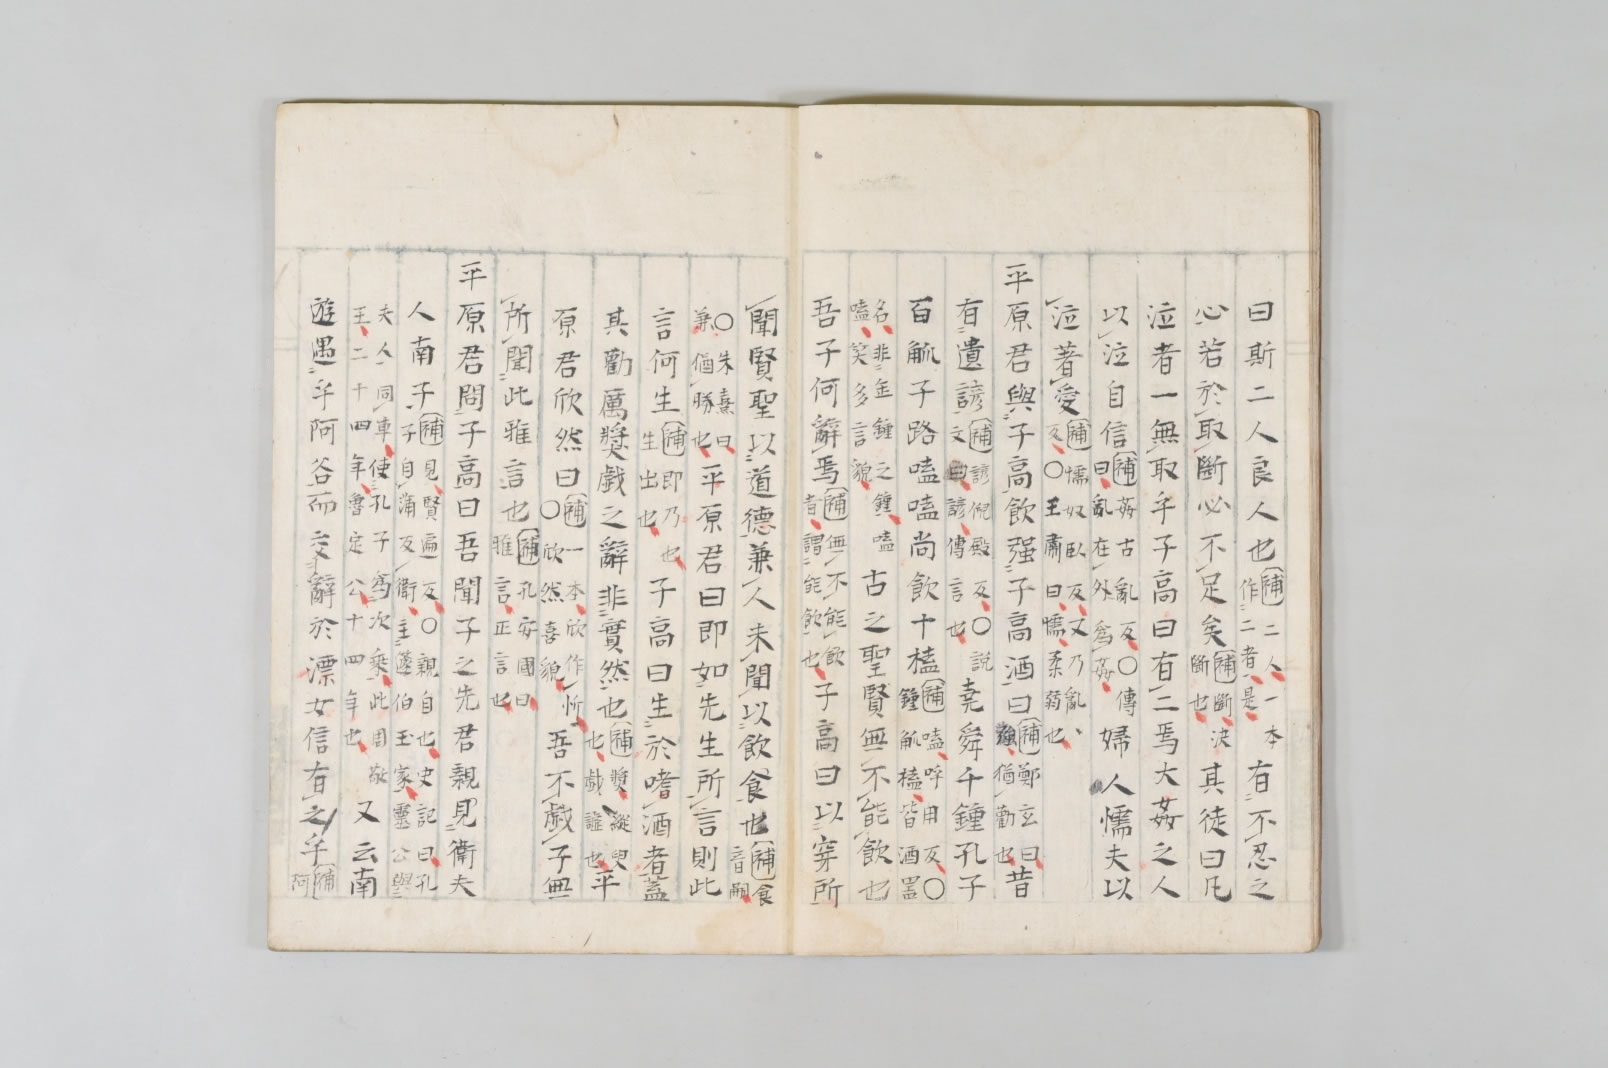 曰斯二人良人也補二人一本作二者是有不忍之
心若於取斷必不足矣補斷決斷也其徒曰凡
泣者一無取乎子高曰有二焉大姦之人
以泣自信補姦古亂反○傳曰亂在外爲姦婦人懦夫以
泣著愛補懦奴臥反又乃亂反○王肅曰懦柔弱也
平原君與子高飲强子高酒曰補鄭玄曰强猶勸也昔
有遺諺補諺倪殿反○說文曰諺傳言也堯舜千鍾孔子
百觚子路嗑嗑尚飲十榼補嗑呼用反○鍾觚榼皆酒噐
名非金鍾之鍾嗑嗑笑多言貌古之聖賢無不能飲也
吾子何辭焉補無不能飮者謂能飮也子高曰以穿所
聞賢聖以道德兼人未聞以飲食也補食音嗣
○朱熹曰兼猶勝也平原君曰即如先生所言則此
言何生補即乃也生出也子高曰生於嗜酒者蓋
其勸厲奬戲之辭非實然也補奬縱臾也戲謔也平
原君欣然曰補一本欣作忻○欣然喜貌吾不戯子無
所聞此雅言也補孔安國曰雅言正言也
平原君問子高曰吾聞子之先君親見衛夫
人南子補見賢遍反○親自也史記曰孔子自蒲反衛主蘧伯玉家靈公與
夫人同車使孔子爲次乘此周敬王二十四年魯定公十四年也又云南
遊遇乎阿谷而交辭於漂女信有之乎補阿